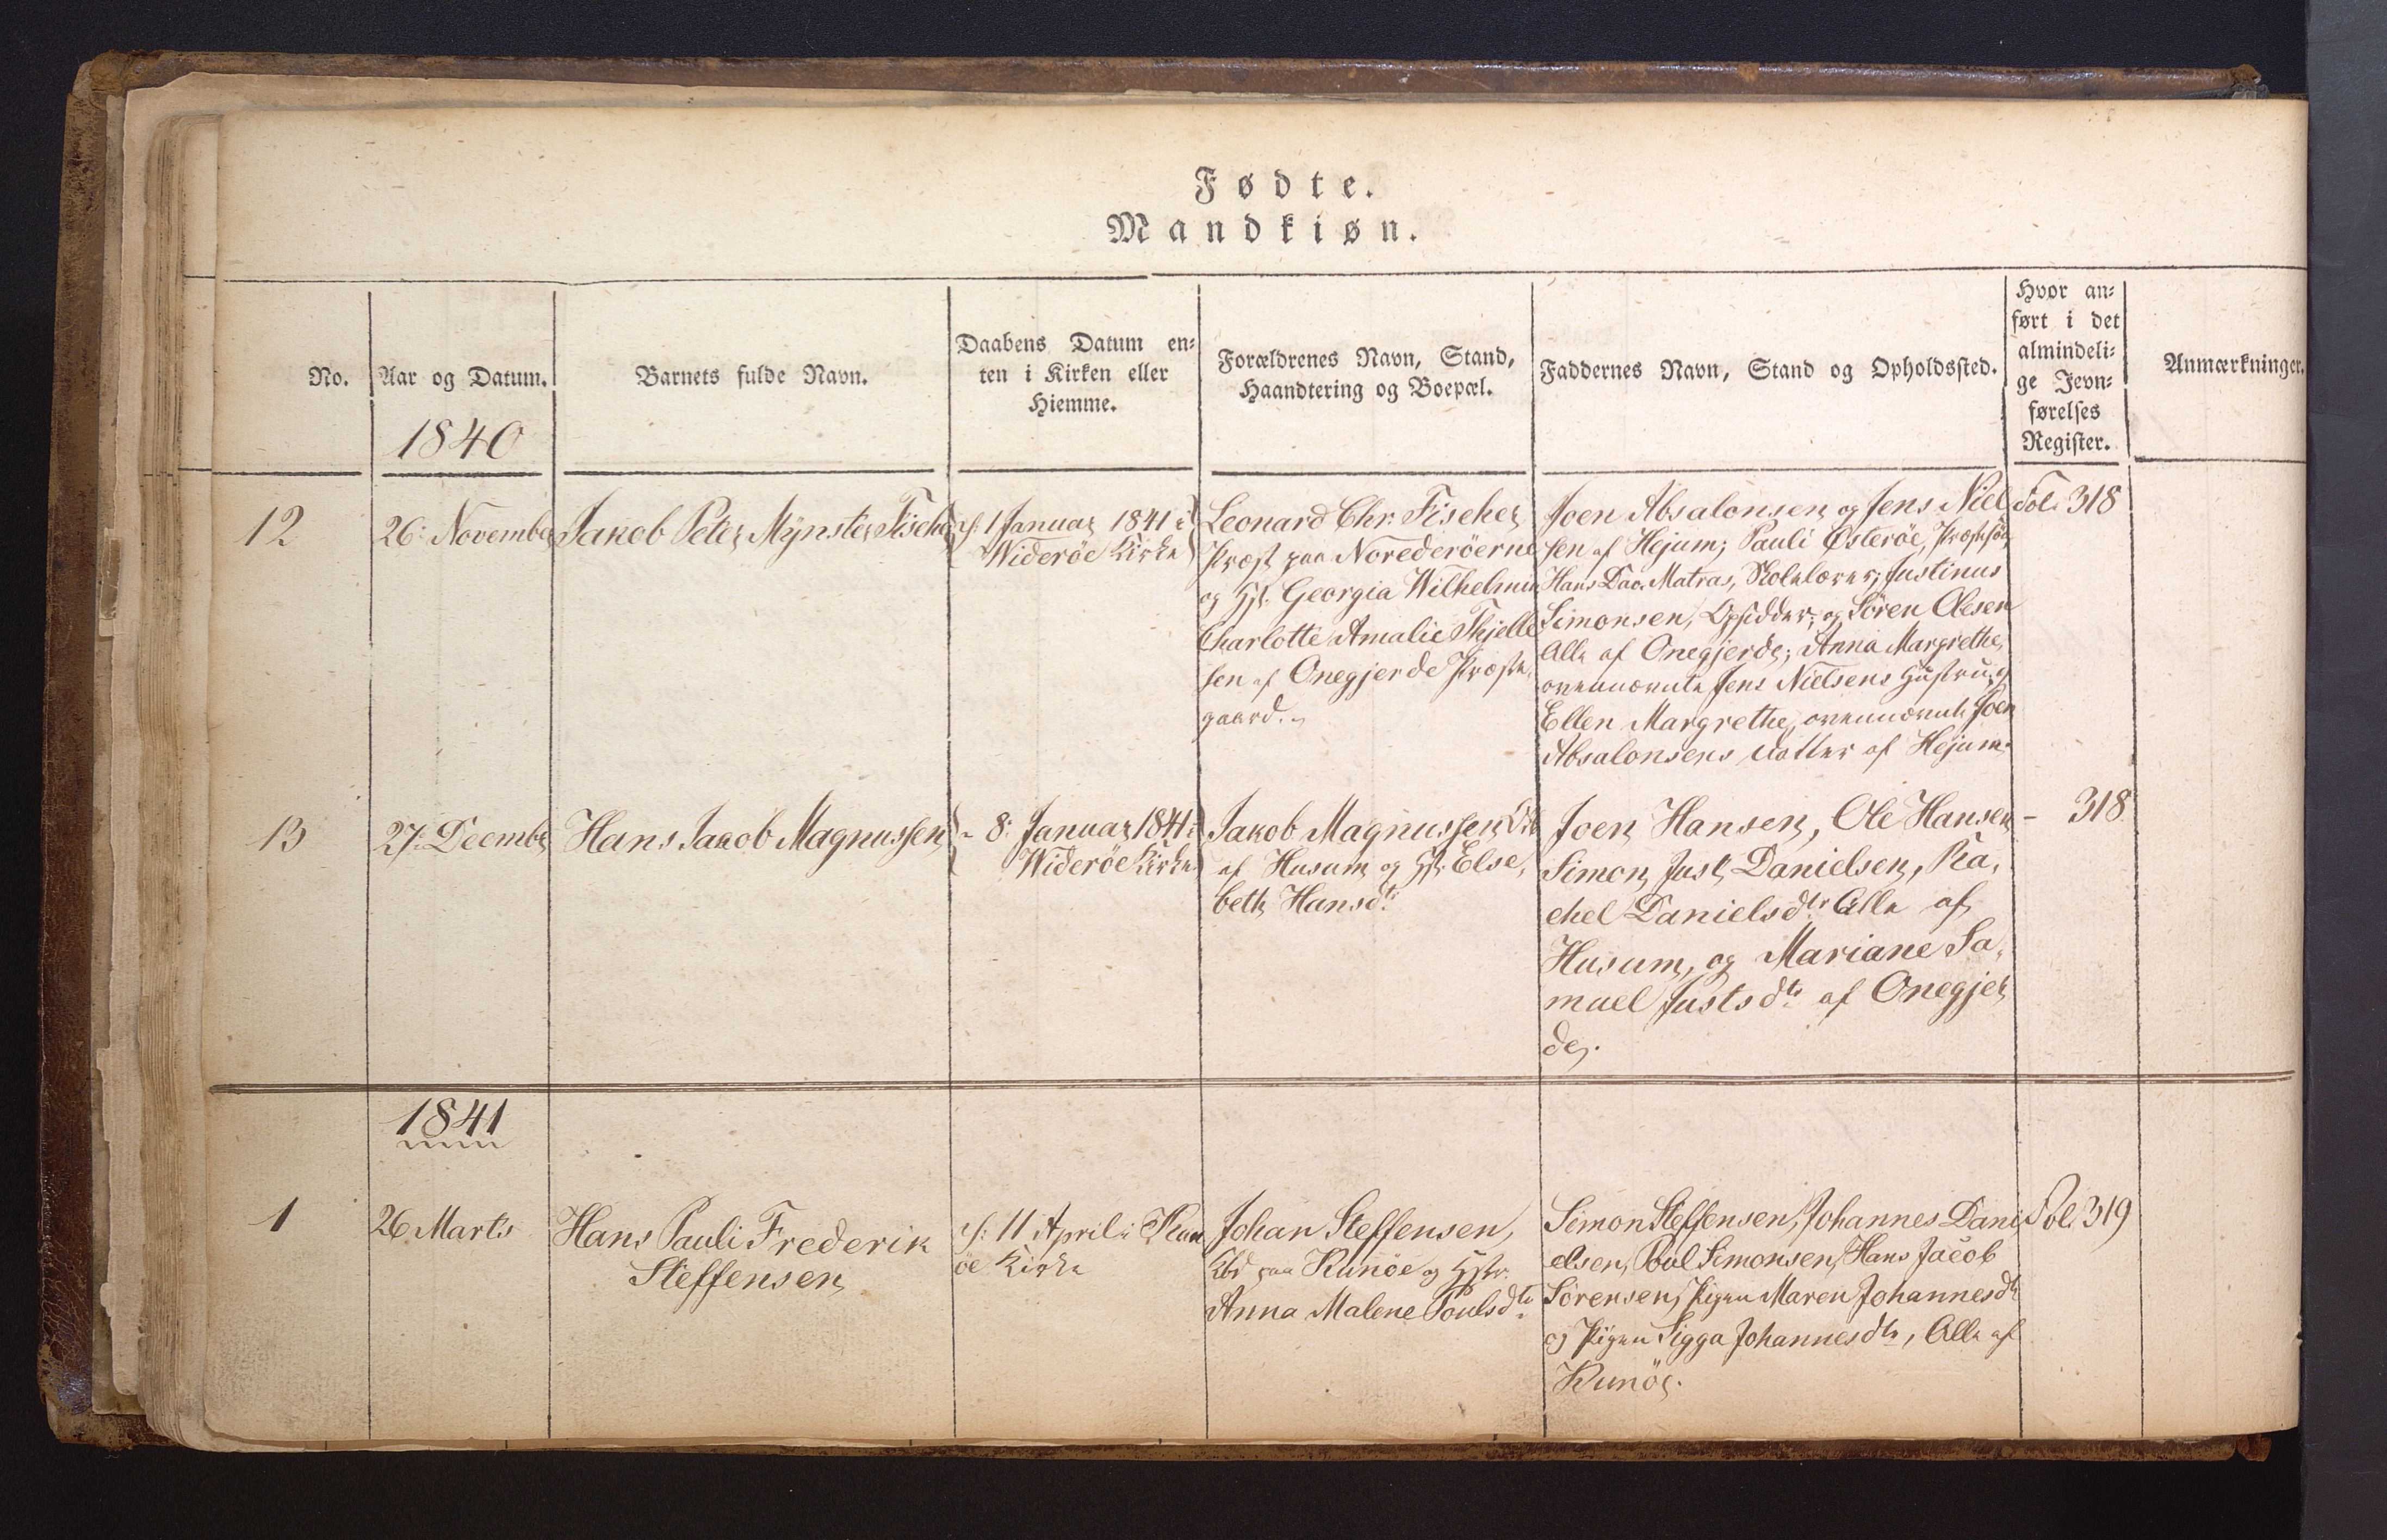 Fødte.
Mandkiøn.
No.
Aar og Datum.
1840
Barnets fulde Navn.
Daabens Datum en-
ten i Kirken eller
Hiemme.
Forældrenes Navn, Stand,
Haandtering og Boepæl.
Faddernes Navn, Stand og Opholdssted.
Hvor an-
ført i det
almindeli-
ge Jevn-
førelses
Register.
Anmærkninger.
12
26: November
Jakob Peter Mynster Fischer
1 Januar 1841 i
Wideröe Kirke
Leonard Chr. Fischer
Præst paa Norederöerne
og Hst. Georgia Wilhelmin
Charlotte Amalie Tkjelle
sen af Onegjerde Præste
gaard.
Joen Absalonsen og Jens Niel
sen af Hejum; Pauli Østeröe,
Hans Dav. Matras, Skolelærer; Justinus
Simonsen, Opsidder; og Sören Olesen
Alle af Onegjerde; Anna Margrethe,
ovennævnte Jens Nielsens Hustru; og
Ellen Margrethe, ovennævnte Joen
Absalonsens Datter af Hejum.
Fol. 318
13
27: Decembr
Hans Jacob Magnussen
- 8: Januar 1841 i
Wideröe Kirke
Jakob Magnussen
af Husum og Hst. Else,
beth Hansdtr
Joen Hansen, Ole Hansen
Simon Just Danielsen, Ra,
chel Danielsdtr Alle af
Husum, og Mariane Sa,
muel Justsdtr af Onegjer
de.
- 318
1841
1
26 Marts
Hans Pauli Frederik
Steffensen
11 April i Kun
öe Kirke
Johan Steffensen,
paa Kunöe og Hstr.
Anna Malene Poulsdtr
Simon Steffensen, Johannes Dani,
elsen, Poul Simonsen, Hans Jacob
Sörensen, Pigen Maren Johannesdtr
og Pigen Sigga Johannesdtr, Alle af
Kunöe.
Fol. 319